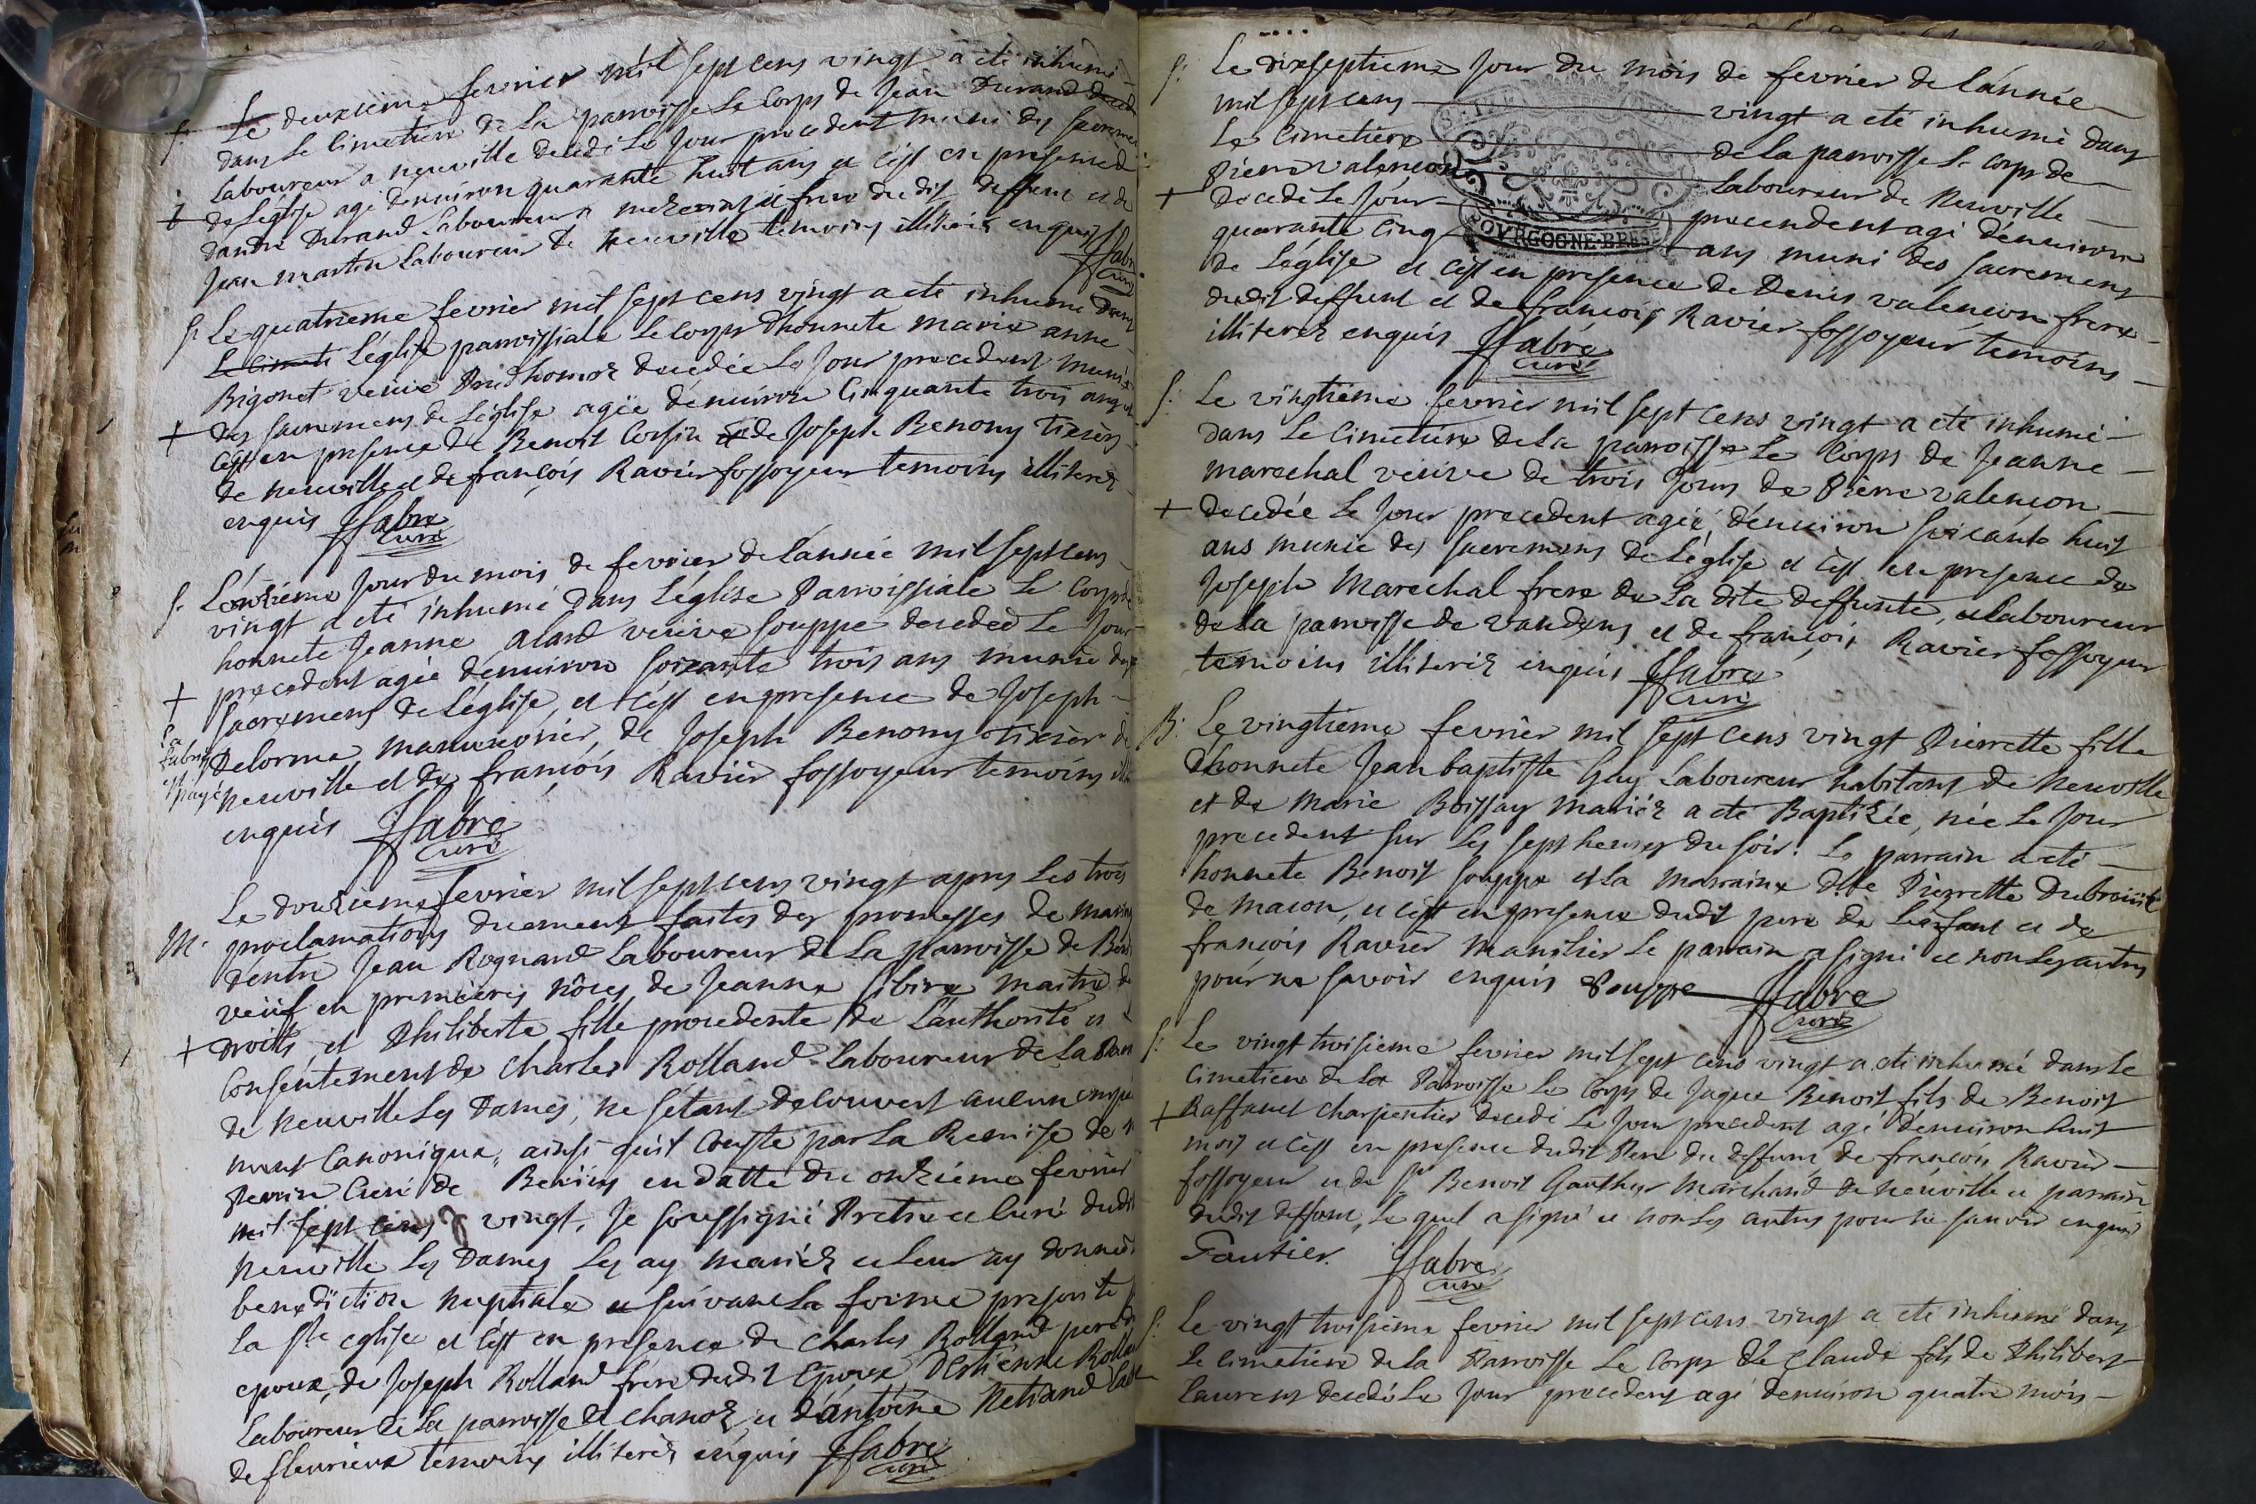 S. Le deuxieme fevrier mil sept cens vingt a eté inhumé
dans le cimetiere de la parroisse le corps de Jean Durand
laboureur a neuville decedé le jour precedent muni des sacremens
de l'église agé denuiron quarante huit ans et c'est en presence de
dandré Durand laboureur frere dudit deffunt et de
Jean martin laboureur de neuville temoins illiterés enquis
ffabre
Curé
S. Le quatrieme fevrier mil sept cens vingt a eté inhumé dans
le cimeti l'église parroissiale le corps d'honnete marie anne
Bigonet veuve Prudhomme decedée le jour precedent munie
des sacremens de l'église agée dénuiron Cinquante trois ans et
c'est en presence de Benoit Corsin et de Joseph Benony tixier
de neuville et de françois Ravier fossoyeur temoins illiterés
enquis ffabre
Curé
S. L'onzieme Jour du mois de fevrier de l'année mil sept cens
vingt a eté inhumé dans l'église Parroissiale le corps de
honnete Jeanne aland veuve souppe decedée le jour
precedent agée dénuiron soixante trois ans munie des
sacremens de l'église, et c'est en presence de Joseph
Delorme manuvrier, de Joseph Benony tixier de
neuville et de françois Ravier fossoyeur temoins
La
fabrique
est
payé
enquis ffabre
Curé
M. Le douzieme fevrier mil sept cens vingt apres les trois
proclamations duement faites des promesses de mariage
dentre Jean Rognard laboureur de la parroisse de
veuf en premieres nôces de Jeanne sibire maitre de
droits, et Philiberte fille procedente de l'authorité et
consentement de Charles Rolland laboureur de la
de neuville les Dames, ne s'étant decouvert aucun
ment Canonique, ainsi qu'il conste par la Remise de
Curé de Beniins en datte du onzieme fevrier
mil sept cens vingt, Je soussigné Pretre et Curé dudit
neuville les Dames les ay mariés et leur ay donné
benediction nuptiale suivant la forme prescrite
la ste église et c'est en presence de Charles Rolland pere de
epouse, de Joseph Rolland frere dudit Epouse, D'Etienne Rolland
laboureur de la parroisse de chanoz, et d'antoine
de fleurieux temoins illiterés enquis ffabre
Curé
S. Le dixseptieme Jour du mois de fevrier de l'année
mil sept cens vingt a eté inhumé dans
le cimetiere de la parroisse le corps de
Pierre valençon laboureur de neuville
decedé le Jour precendent agé d'énuiron
quarante cinq ans muni des sacremens
de l'église et c'est en presence de Denis valençon frere
dudit deffunt et de françois Ravier fossoyeur temoins
illiterés enquis ffabre
Curé
BOURGOGNE·BRESSE
S. Le vingtieme fevrier mil sept cens vingt a eté inhumé
dans le cimetiere de la parroisse le corps de Jeanne
marechal veuve de trois jours de Pierre valençon
decedée le jour precedent agée dénuiron soixante huit
ans munie des sacremens de l'église et c'est en presence de
Joseph Marechal frere de la dite deffunte, et laboureur
de la parroisse de vandens et de françois Ravier fossoyeur
temoins illiterés enquis ffabre
Curé
B. Le vingtieme fevrier mil sept cens vingt Pierrette fille
d'honnete Jean baptiste Guy laboureur habitant de neuville
et de Marie Boissay Mariés a eté Baptizée, née le jour
precedent sur les sept heures du soir. Le parrain a eté
honnete Benoit souppe et la Marraine dlle Pierrette
de macon, et c'est en presence dudit pere de l'enfant et de
françois Ravier Manilier le parrain a signé et non les autres
pour ne savoir enquis Souppe ffabre
Curé
S. Le vingt troisieme fevrier mil sept cens vingt a eté inhumé dans le
cimetiere de la Parroisse le corps de Jaque Benoit fils de Benoit
Raffanel charpentier decedé le jour precedent agé dénuiron huit
mois et c'est en presence dudit Pere du deffunt de françois Ravier
fossoyeur et de Sr Benoit Gauthier Marchand de neuville et parrain
dudit deffunt, le quel a signé et non les autres pour ne sauoir enquis
Gautier. ffabre
Curé
S. Le vingt troisieme fevrier mil sept cens vingt a eté inhumé dans
le cimetiere de la Parroisse le corps de Claude fils de Philibert
laurent decedé le jour precedent agé denuiron quatre mois